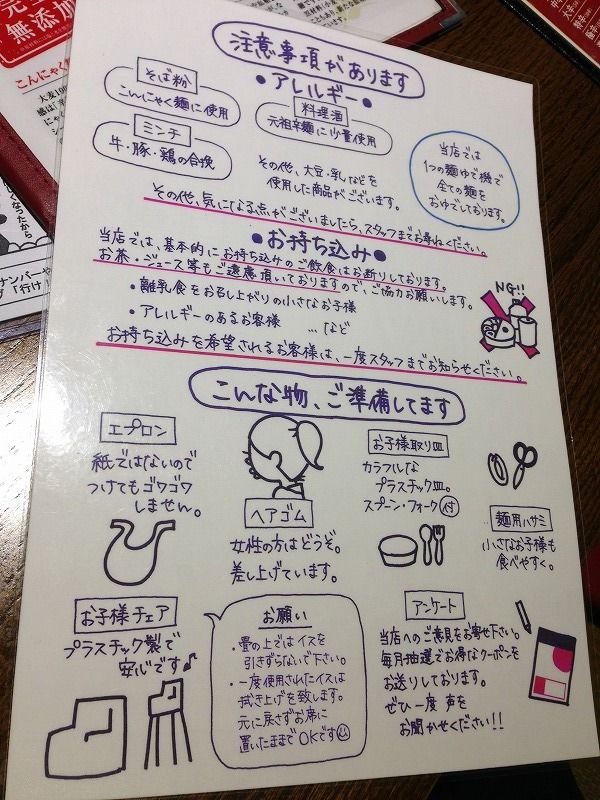 完全
無添加
こんにゃく
注意事項があります
・アレルギー・
そば粉
こんにゃく麺に使用
料理酒
元祖辛麺に少量使用
ミンチ
牛・豚・鶏の合挽
その他、大豆・乳などを
使用した商品がございます。
当店では
1つの麺ゆで機で
全ての麺を
おゆでしております。
その他、気になる点がございましたら、スタッフまでお尋ねください。
・お持ち込み・
当店では、基本的にお持ち込みのご飲食はお断りしております。
お茶・ジュース等もご遠慮頂いておりますので、ご協力お願いします。
・離乳食をお召し上がりの小さなお子様
・アレルギーのあるお客様 …など
NG!!
お持ち込みを希望されるお客様は、一度スタッフまでお知らせください。
こんな物、ご準備してます
エプロン
紙ではないので
つけてもゴワゴワ
しません。
ヘアゴム
女性の方はどうぞ。
差し上げています。
お子様取り皿
カラフルな
プラスチック皿。
スプーン・フォーク付
麺用ハサミ
小さなお子様も
食べやすく。
お子様チェア
プラスチック製で
安心です♪
お願い
・畳の上ではイスを
引きずらないで下さい。
・一度使用されたイスは
拭き上げを致します。
元に戻さずお席に
置いたままでOKです
アンケート
当店へのご意見をお寄せ下さい。
毎月抽選でお得なクーポンを
お送りしております。
ぜひ一度 声を
お聞かせください!!